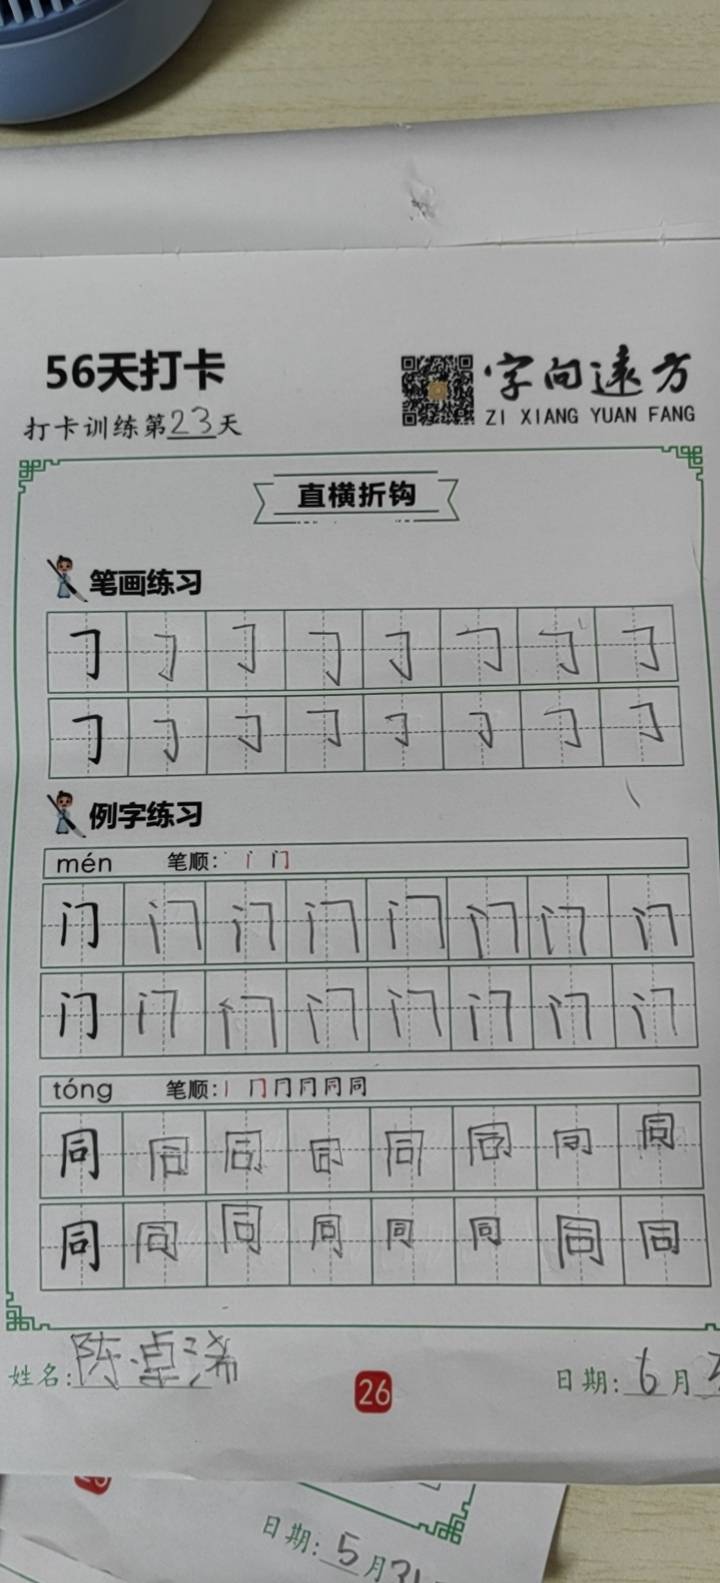 56天打卡
字向远方
打卡训练第23天
ZI XIANG YUAN FANG
直横折钩
笔画练习
例字练习
mén 笔顺: 门
门 门 门 门 门 门 门 门
门 门 门 门 门 门 门 门
tóng 笔顺: 丨 冂 冂 同 同
同 同 同 同 同 同 同 同
同 同 同 同 同 同 同 同
姓名: 陈卓浠
26
日期: 6月
日期: 5月31